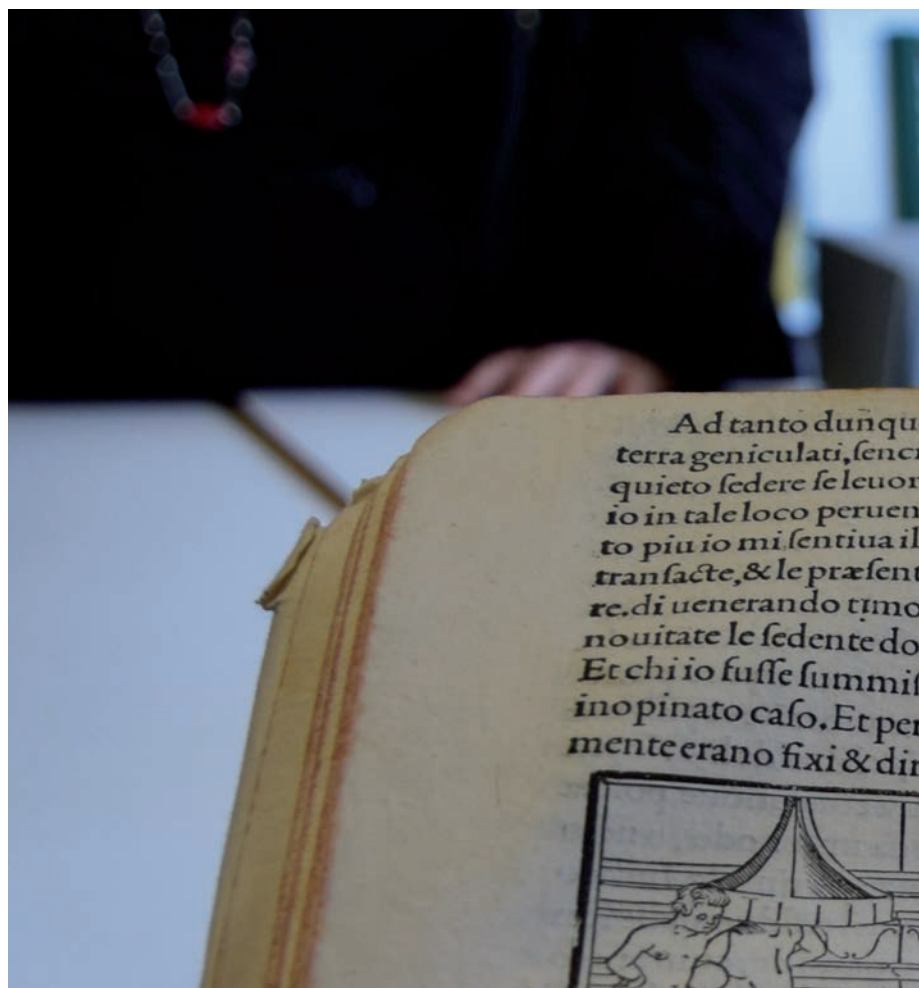 Ad tanto dunqu
terra geniculati, ſenc
quieto ſedere ſe leuor
io in tale loco peruen
to piu io mi ſentiua il
tranſacte, & le præſent
re. di uenerando timo
nouitate le ſedente do
Et chi io fuſſe ſummiſ
inopinato caſo. Et per
mente erano fixi & dir